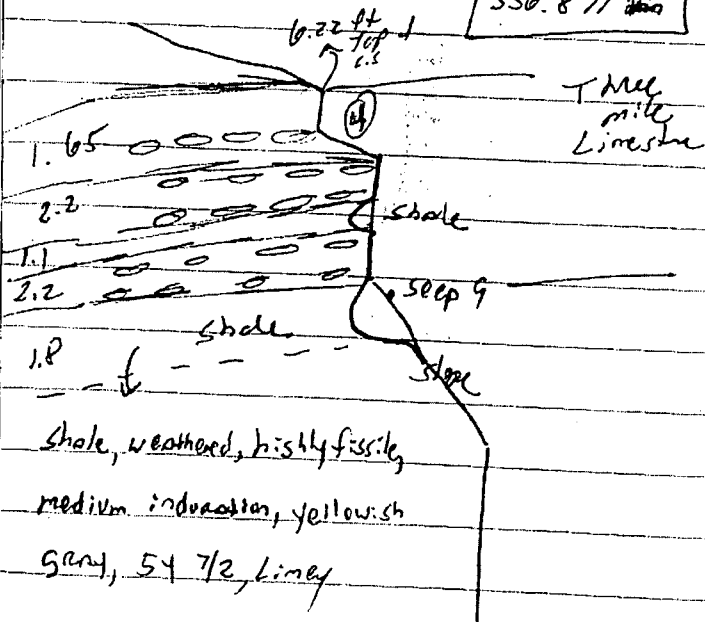 6.22 ft
Top of
L.S
336.877
Three
mile
Limestone
4
1.65
2.2
shale
1.1
2.2
seep 9
shale
1.8
slope
shale, weathered, highly fissile,
medium induration, yellowish
gray, 5Y 7/2, Limey